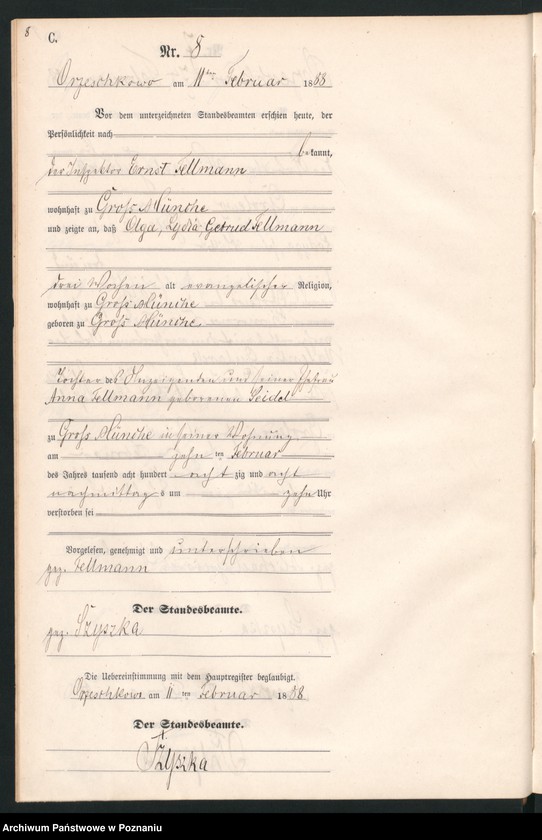 8
C.
Nr. 8
Orzeschkowo am 11ten Februar 1888
Vor dem unterzeichneten Standesbeamten erschien heute, der
Persönlichkeit nach
bekannt,
der Inspektor Ernst Fellmann
wohnhaft zu Groß Münche
und zeigte an, daß Olga, Lydia Getrud Fellmann
drei Wochen alt evangelischer Religion,
wohnhaft zu Groß Münche
geboren zu Groß Münche
Tochter des Anzeigenden und seiner Ehefrau
Anna Fellmann geborenen Seidel
zu Groß Münche in seiner Wohnung
am zehn ten Februar
des Jahres tausend acht hundert acht zig und acht
nachmittag s um zehn Uhr
verstorben sei
Vorgelesen, genehmigt und unterschrieben
gez. Fellmann
Der Standesbeamte.
gez. Szyszka
Die Uebereinstimmung mit dem Hauptregister beglaubigt.
Orzeschkowo am 11 ten Februar 1888
Der Standesbeamte.
Szyszka
Archiwum Państwowe w Poznaniu